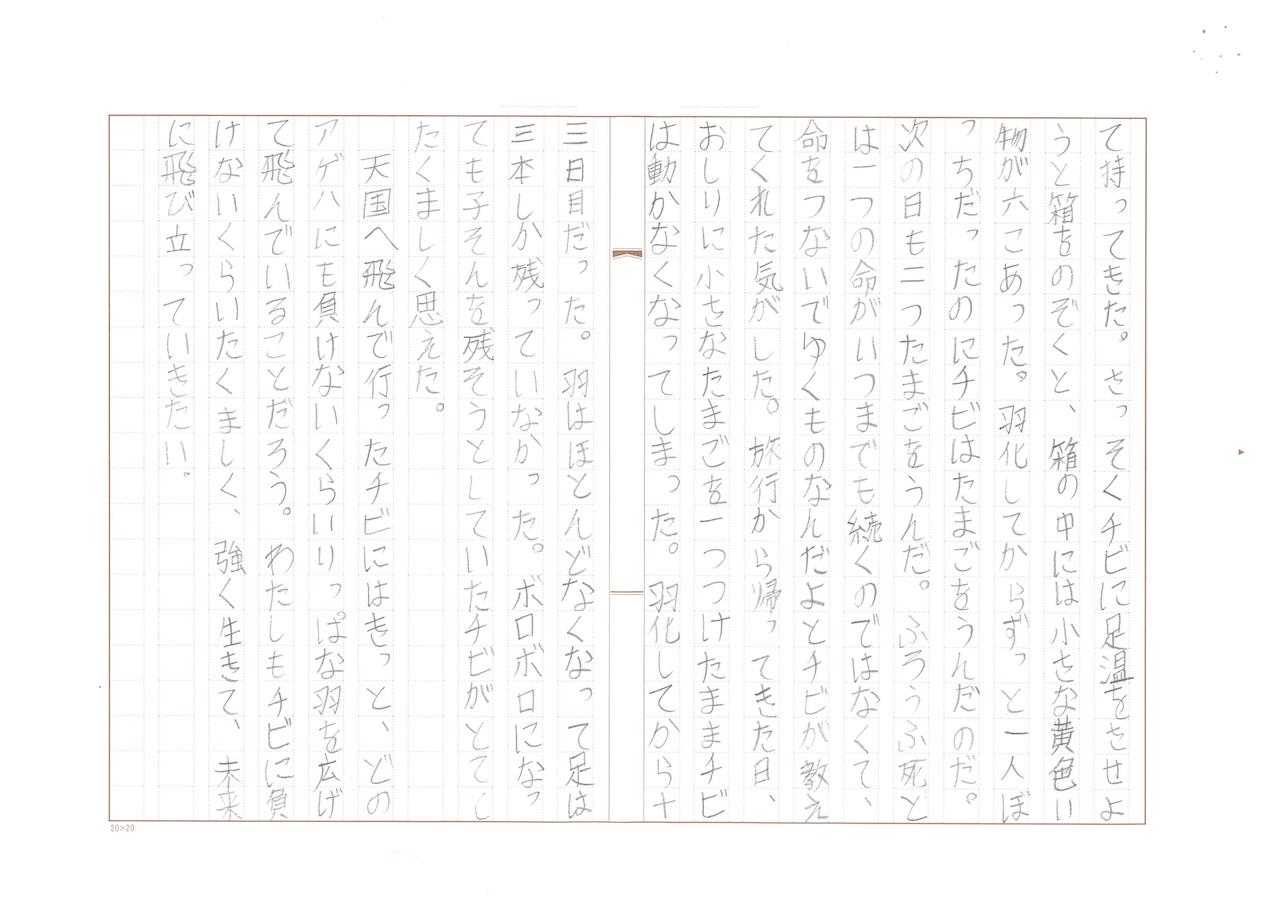 て持ってきた。さっそくチビに足温をさせよ
うと箱をのぞくと、箱の中には小さな黄色い
物が六こあった。羽化してからずっと一人ぼ
っちだったのにチビはたまごをうんだのだ。
次の日も二つたまごをうんだ。ふろうふ死と
は一つの命がいつまでも続くのではなくて、
命をつないでゆくものなんだよとチビが教え
てくれた気がした。旅行から帰ってきた日、
おしりに小さなたまごを一つつけたままチビ
は動かなくなってしまった。羽化してから十
三日目だった。羽はほとんどなくなって足は
三本しか残っていなかった。ボロボロになっ
ても子そんを残そうとしていたチビがとても
たくましく思えた。
天国へ飛んで行ったチビにはきっと、どの
アゲハにも負けないくらいりっぱな羽を広げ
て飛んでいることだろう。わたしもチビに負
けないくらいたくましく、強く生きて、未来
に飛び立っていきたい。
20×20